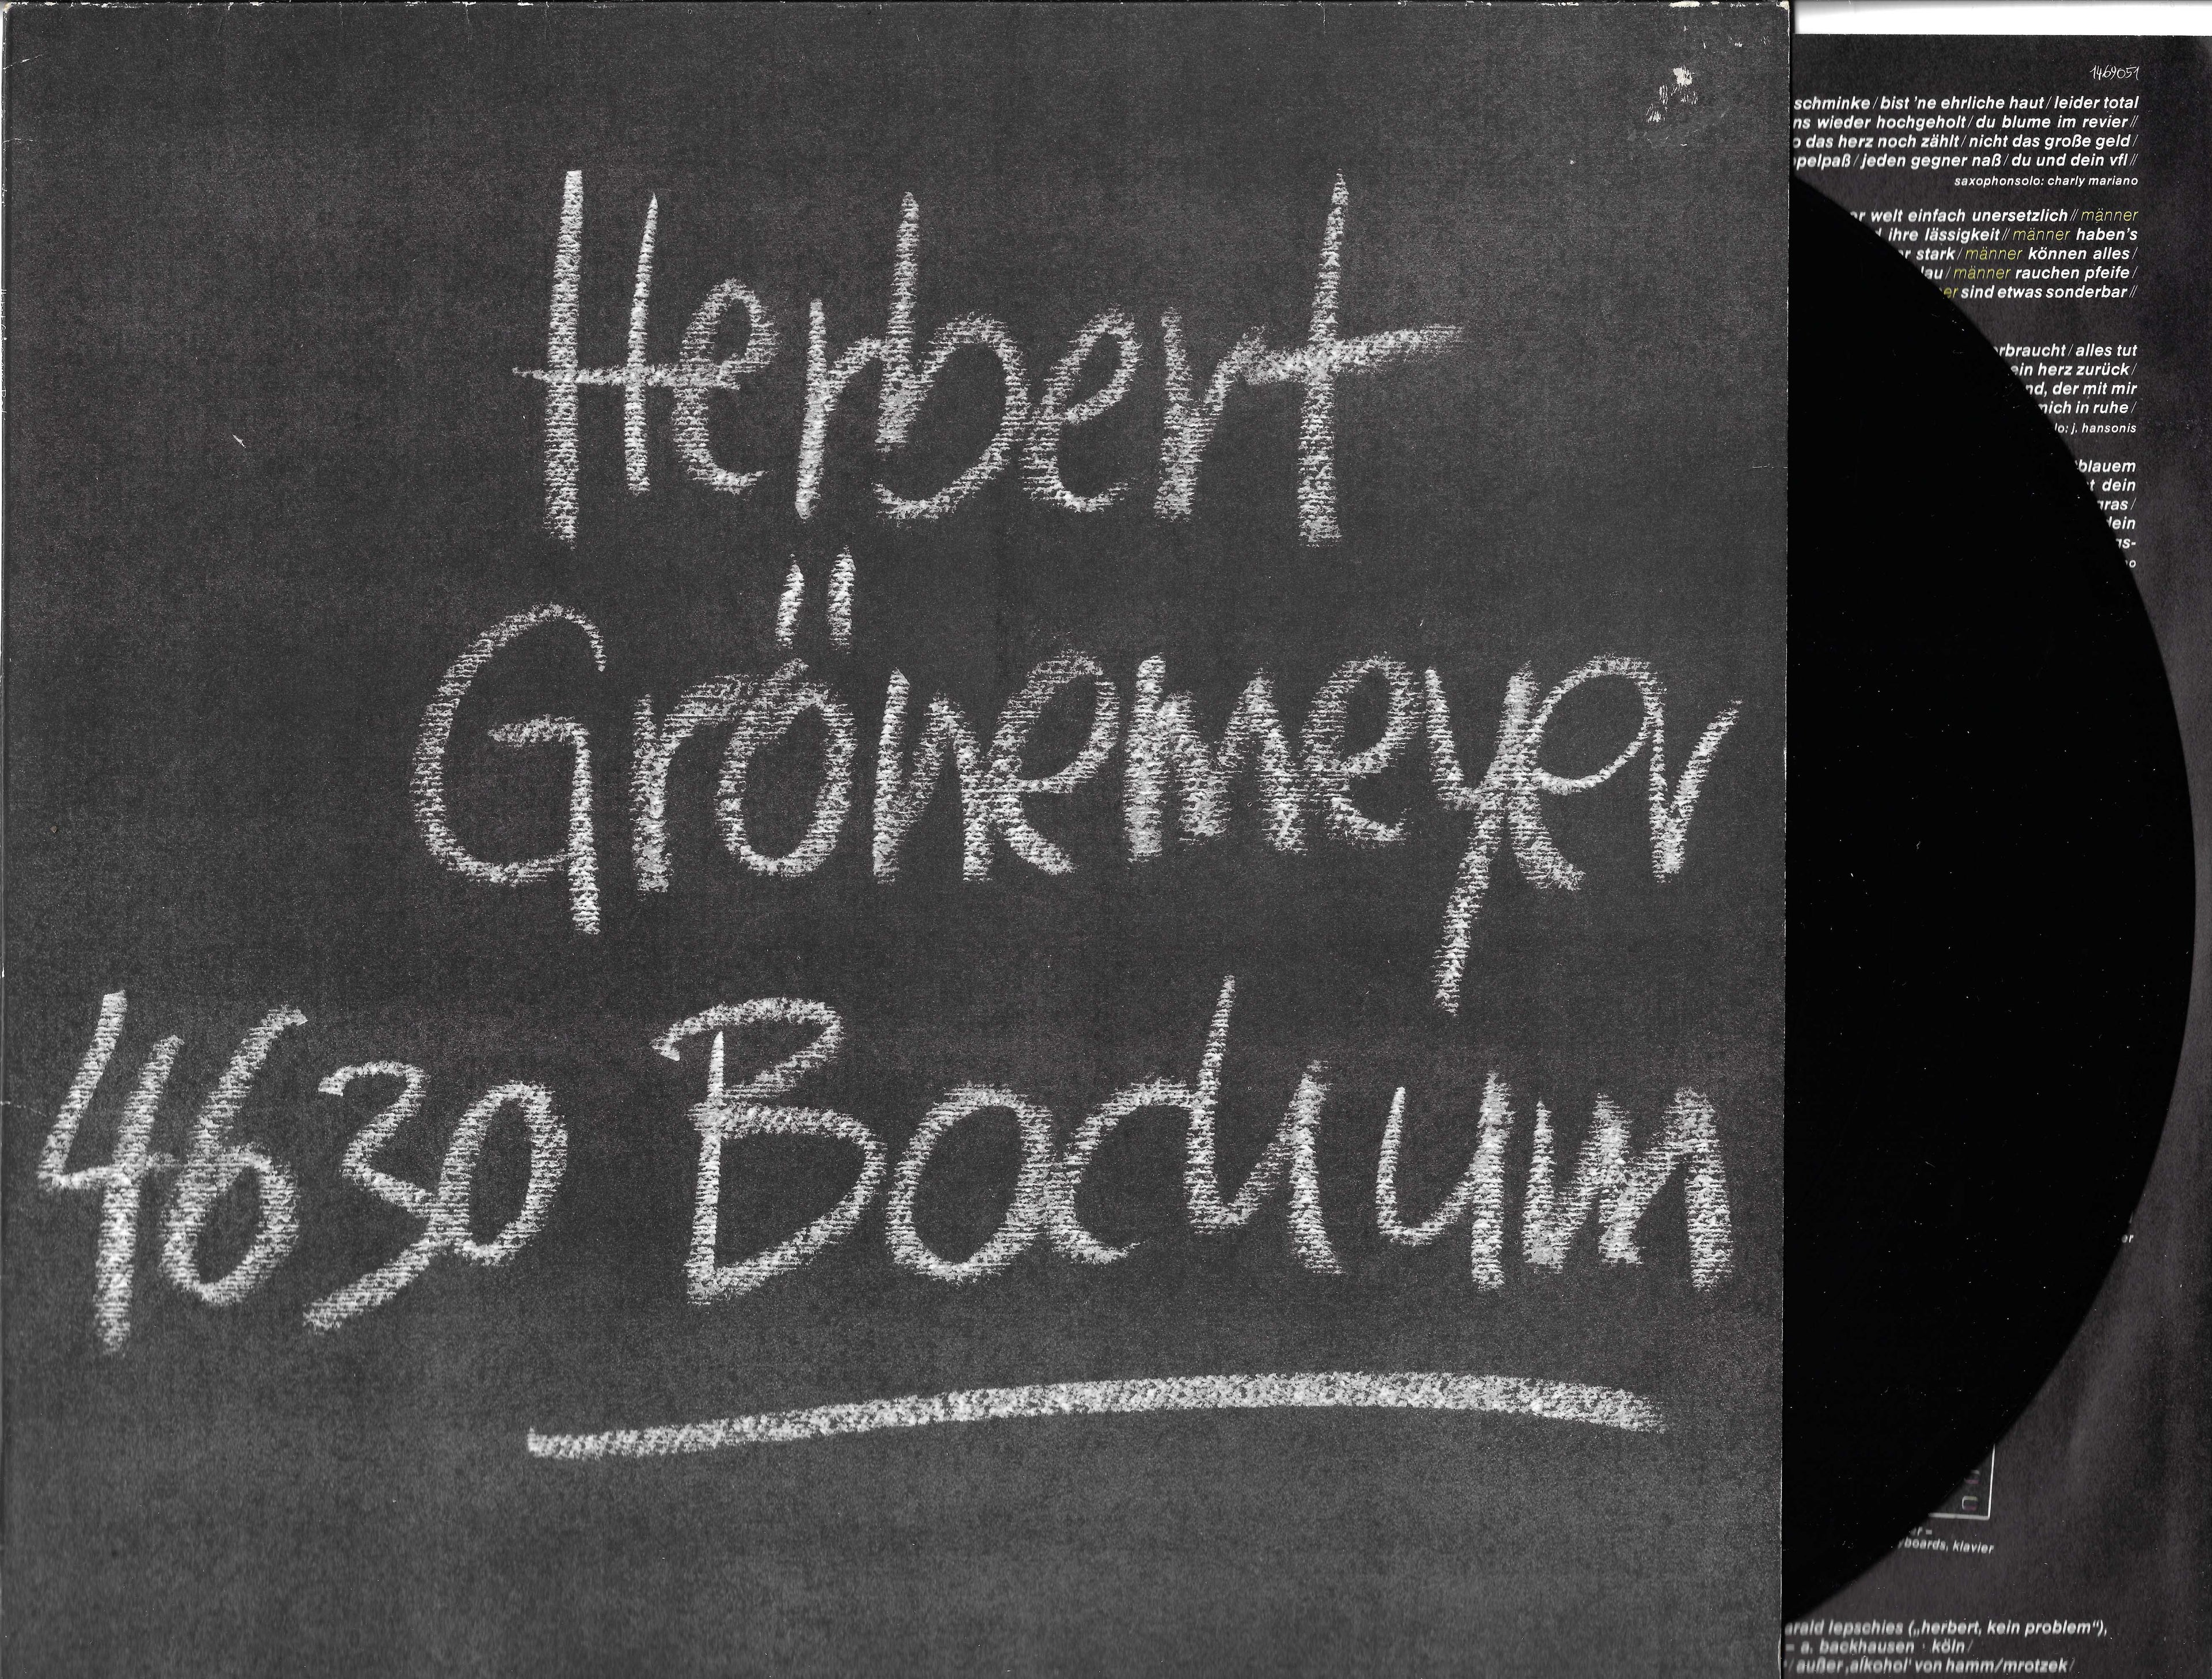 Herbert
Grönemeyer
4630 Bochum
1469051
schminke / bist 'ne ehrliche haut / leider total
wieder hochgeholt / du blume im revier //
das herz noch zählt / nicht das große geld /
jeden gegner naß / du und dein vfl //
saxophonsolo: charly mariano
welt einfach unersetzlich // männer
ihre lässigkeit // männer haben's
stark / männer können alles /
männer rauchen pfeife /
sind etwas sonderbar //
alles tut
herz zurück /
der mit mir
in ruhe /
j. hansonis
blauem
dein
klavier
lepschies („herbert, kein problem“),
= a. backhausen · köln /
/ außer ‚alkohol' von hamm/mrotzek /